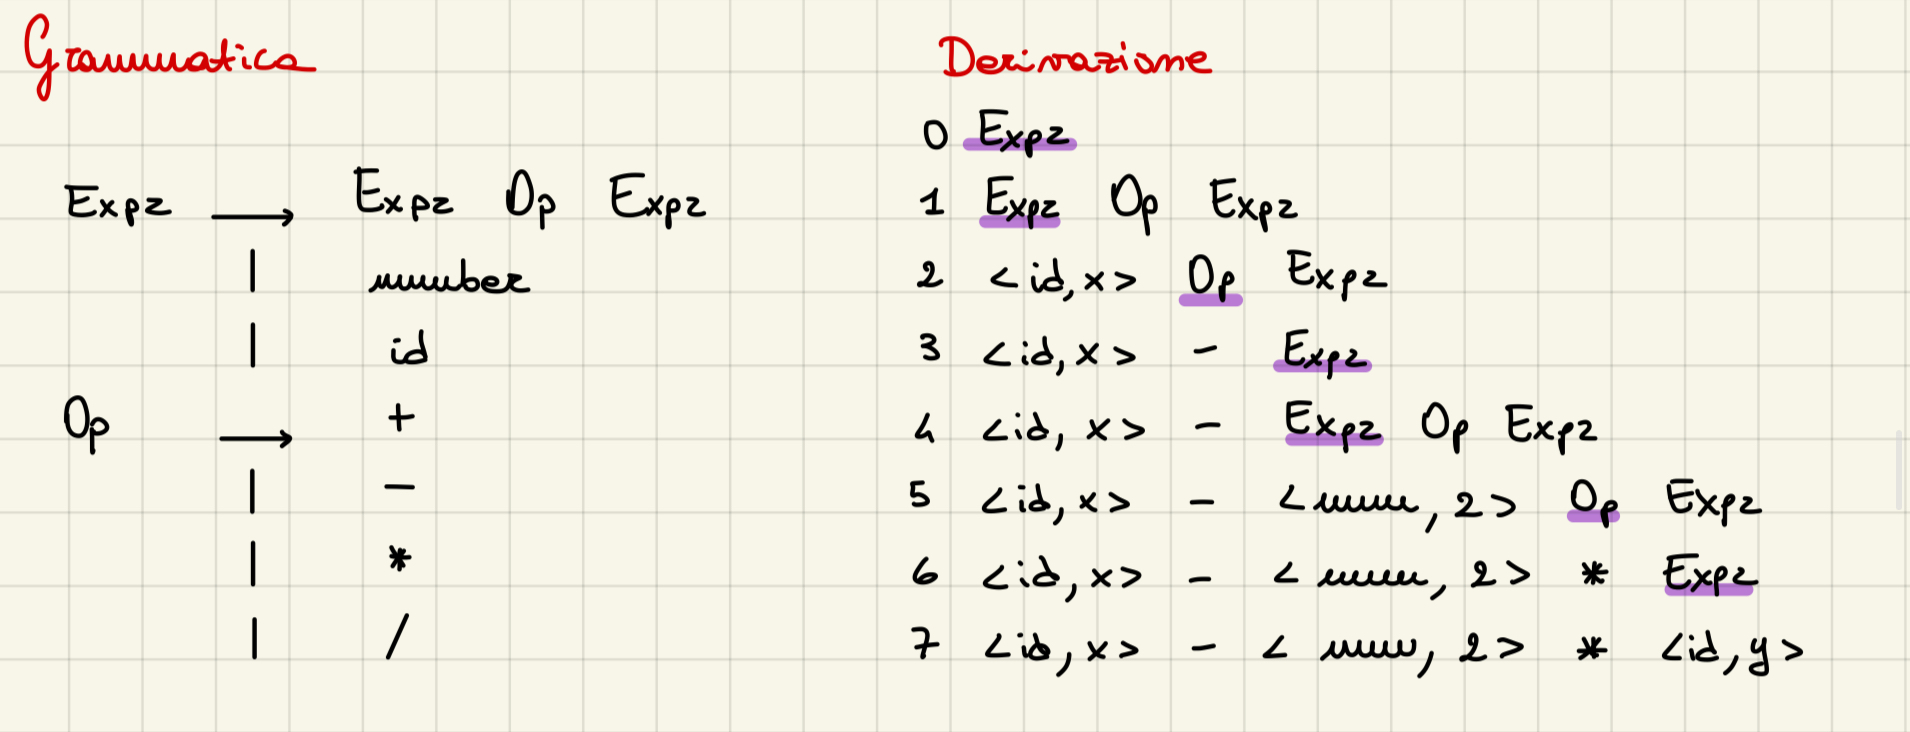 Grammatica
Expr → Expr Op Expr
| number
| id
Op → +
| -
| *
| /
Derivazione
0 Expr
1 Expr Op Expr
2 <id,x> Op Expr
3 <id,x> - Expr
4 <id,x> - Expr Op Expr
5 <id,x> - <num,2> Op Expr
6 <id,x> - <num,2> * Expr
7 <id,x> - <num,2> * <id,y>